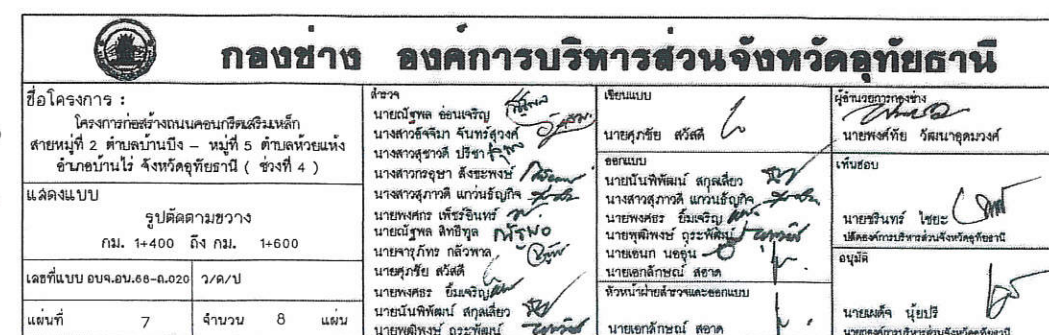 กองช่าง องค์การบริหารส่วนจังหวัดอุทัยธานี
ชื่อโครงการ :
โครงการก่อสร้างถนนคอนกรีตเสริมเหล็ก
สายหมู่ที่ 2 ตำบลบ้านบึง – หมู่ที่ 5 ตำบลห้วยแห้ง
อำเภอบ้านไร่ จังหวัดอุทัยธานี ( ช่วงที่ 4 )
แสดงแบบ
รูปตัดตามขวาง
กม. 1+400 ถึง กม. 1+600
เลขที่แบบ อบจ.อน.66-ถ.020 ว/ด/ป
แผ่นที่ 7 จำนวน 8 แผ่น
สำรวจ
นายณัฐพล อ่อนเจริญ
นางสาวอัจจิมา จันทร์สุวงศ์
นางสาวสุชาวดี ปรีชา
นางสาวกรอุษา สังขะพงษ์
นางสาวสุภาวดี แกว่นธัญกิจ
นายพงศกร เพ็ชร์อินทร์
นายณัฐพล สิทธิทูล
นายจารุภัทร กล้วพาล
นายศุภชัย สวัสดี
นายพงศธร ยิ้มเจริญ
นายนันพิพัฒน์ สกุลเลี่ยว
นายพุฒิพงษ์ ถุระพัฒน์
เขียนแบบ
นายศุภชัย สวัสดี
ออกแบบ
นายนันพิพัฒน์ สกุลเลี่ยว
นางสาวสุภาวดี แกว่นธัญกิจ
นายพงศธร ยิ้มเจริญ
นายพุฒิพงษ์ ถุระพัฒน์
นายเอนก นออุ่น
นายเอกลักษณ์ สอาด
หัวหน้าฝ่ายสำรวจและออกแบบ
นายเอกลักษณ์ สอาด
ผู้อำนวยการกองช่าง
นายพงศ์ทัย วัฒนาอุดมวงศ์
เห็นชอบ
นายชรินทร์ ไชยะ
ปลัดองค์การบริหารส่วนจังหวัดอุทัยธานี
อนุมัติ
นายเผด็จ นุ้ยปรี
นายกองค์การบริหารส่วนจังหวัดอุทัยธานี